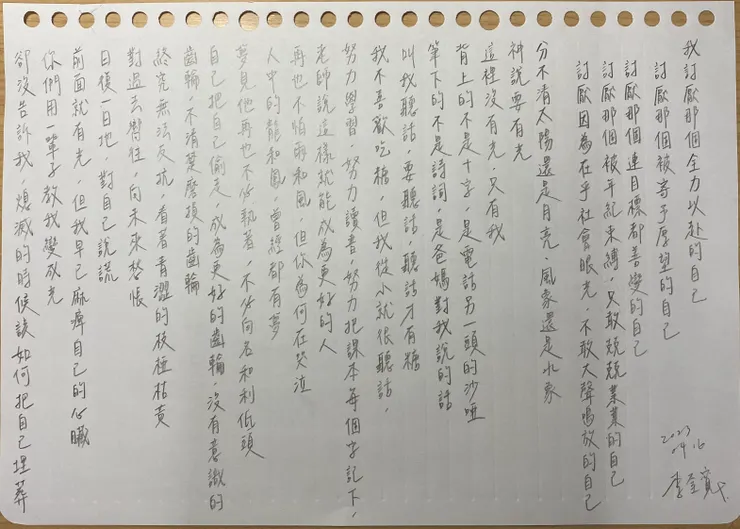 我討厭那個全力以赴的自己
討厭那個被寄予厚望的自己
討厭那個連目標都善變的自己
討厭那個被年紀束縛，只敢兢兢業業的自己
討厭因為在乎社會眼光，不敢大聲鳴放的自己
分不清太陽還是月亮，風象還是水象
神說要有光
這裡沒有光，只有我
背上的不是十字，是電話另一頭的沙啞
筆下的不是詩詞，是爸媽對我說的話
叫我聽話，要聽話，聽話才有糖
我不喜歡吃糖，但我從小就很聽話，
努力學習，努力讀書，努力把課本每個字記下，
老師說這樣就能成為更好的人
再也不怕雨和風，但你為何在哭泣
人中的龍和鳳，曾經都有夢
夢見他再也不必執著，不必向名和利低頭
自己把自己偷走，成為更好的齒輪，沒有意識的
齒輪，不清楚磨損的齒輪
終究無法反抗，看著青澀的枝椏枯黃
對過去嚮往，向未來愁悵
日復一日地，對自己說謊
前面就有光，但我早已麻痺自己的心臟
你們用一輩子教我變成光
卻沒告訴我，熄滅的時候該如何把自己埋葬
2023
04.16
李